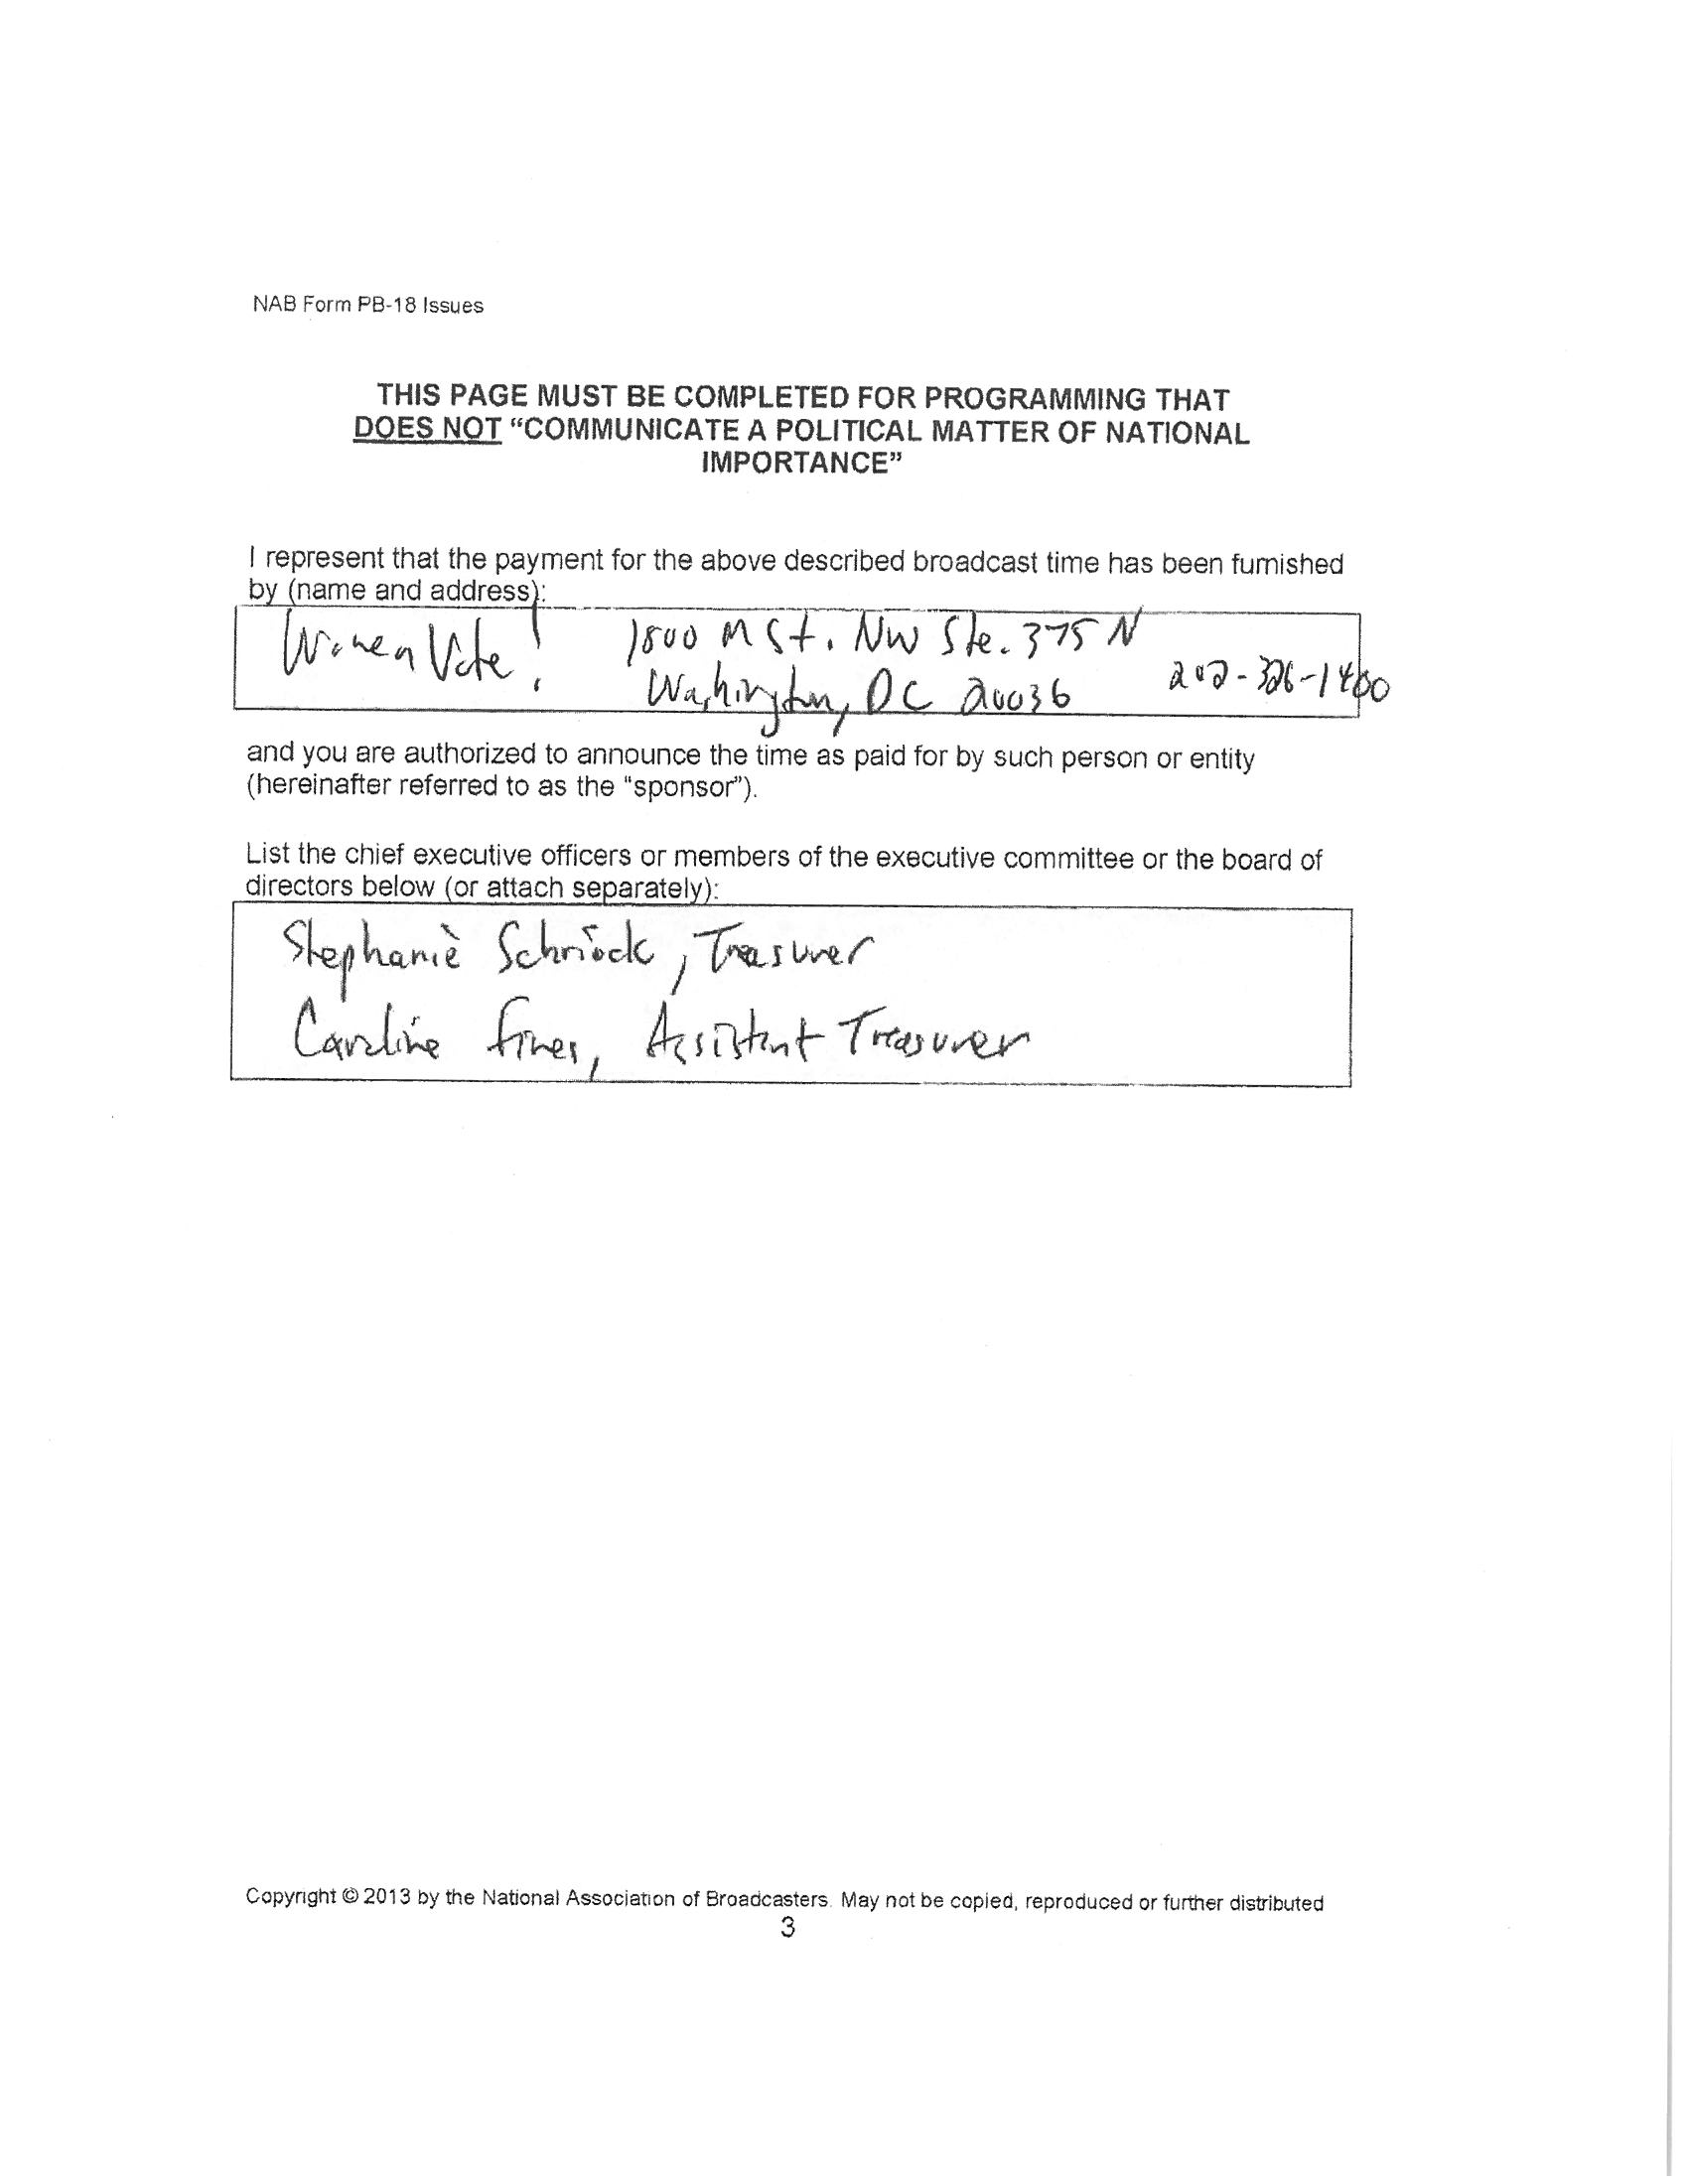 NAB Form PB-18 Issues
THIS PAGE MUST BE COMPLETED FOR PROGRAMMING THAT
DOES NOT “COMMUNICATE A POLITICAL MATTER OF NATIONAL
IMPORTANCE”
I represent that the payment for the above described broadcast time has been furnished
by (name and address):
Women Vote! 1800 M St. NW Ste. 375 N
Washington, DC 20036 202-326-1400
and you are authorized to announce the time as paid for by such person or entity
(hereinafter referred to as the "sponsor").
List the chief executive officers or members of the executive committee or the board of
directors below (or attach separately):
Stephanie Schriock, Treasurer
Caroline Fines, Assistant Treasurer
Copyright © 2013 by the National Association of Broadcasters. May not be copied, reproduced or further distributed
3